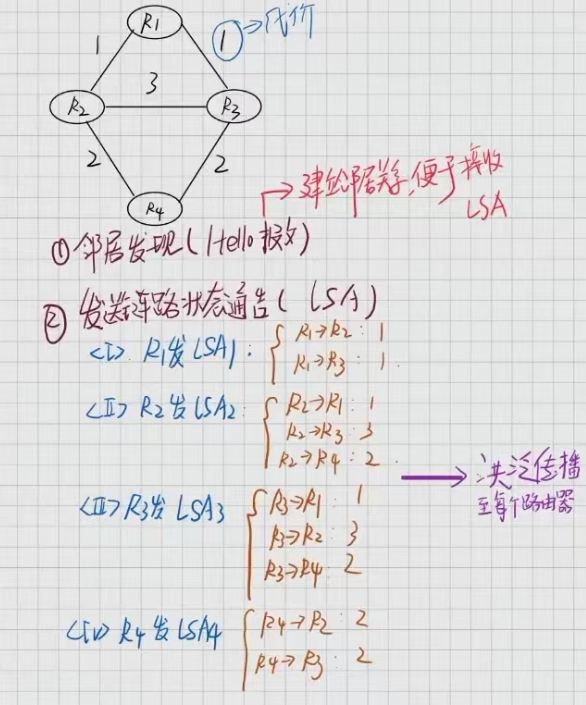 R1
1
①→代价
3
R2
R3
2
2
R4
→建立邻居关系,便于接收
LSA
①邻居发现(Hello报文)
②发送链路状态通告(LSA)
<I> R1发LSA1: { R1→R2: 1
R1→R3: 1.
<II> R2发LSA2: { R2→R1: 1
R2→R3: 3
R2→R4: 2.
→洪泛传播
至每个路由器
<III> R3发LSA3 { R3→R1: 1
R3→R2: 3
R3→R4: 2
<IV> R4发LSA4 { R4→R2: 2
R4→R3: 2